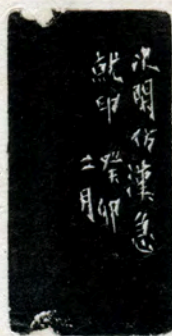 次閑仿漢急
就印 癸卯
二月